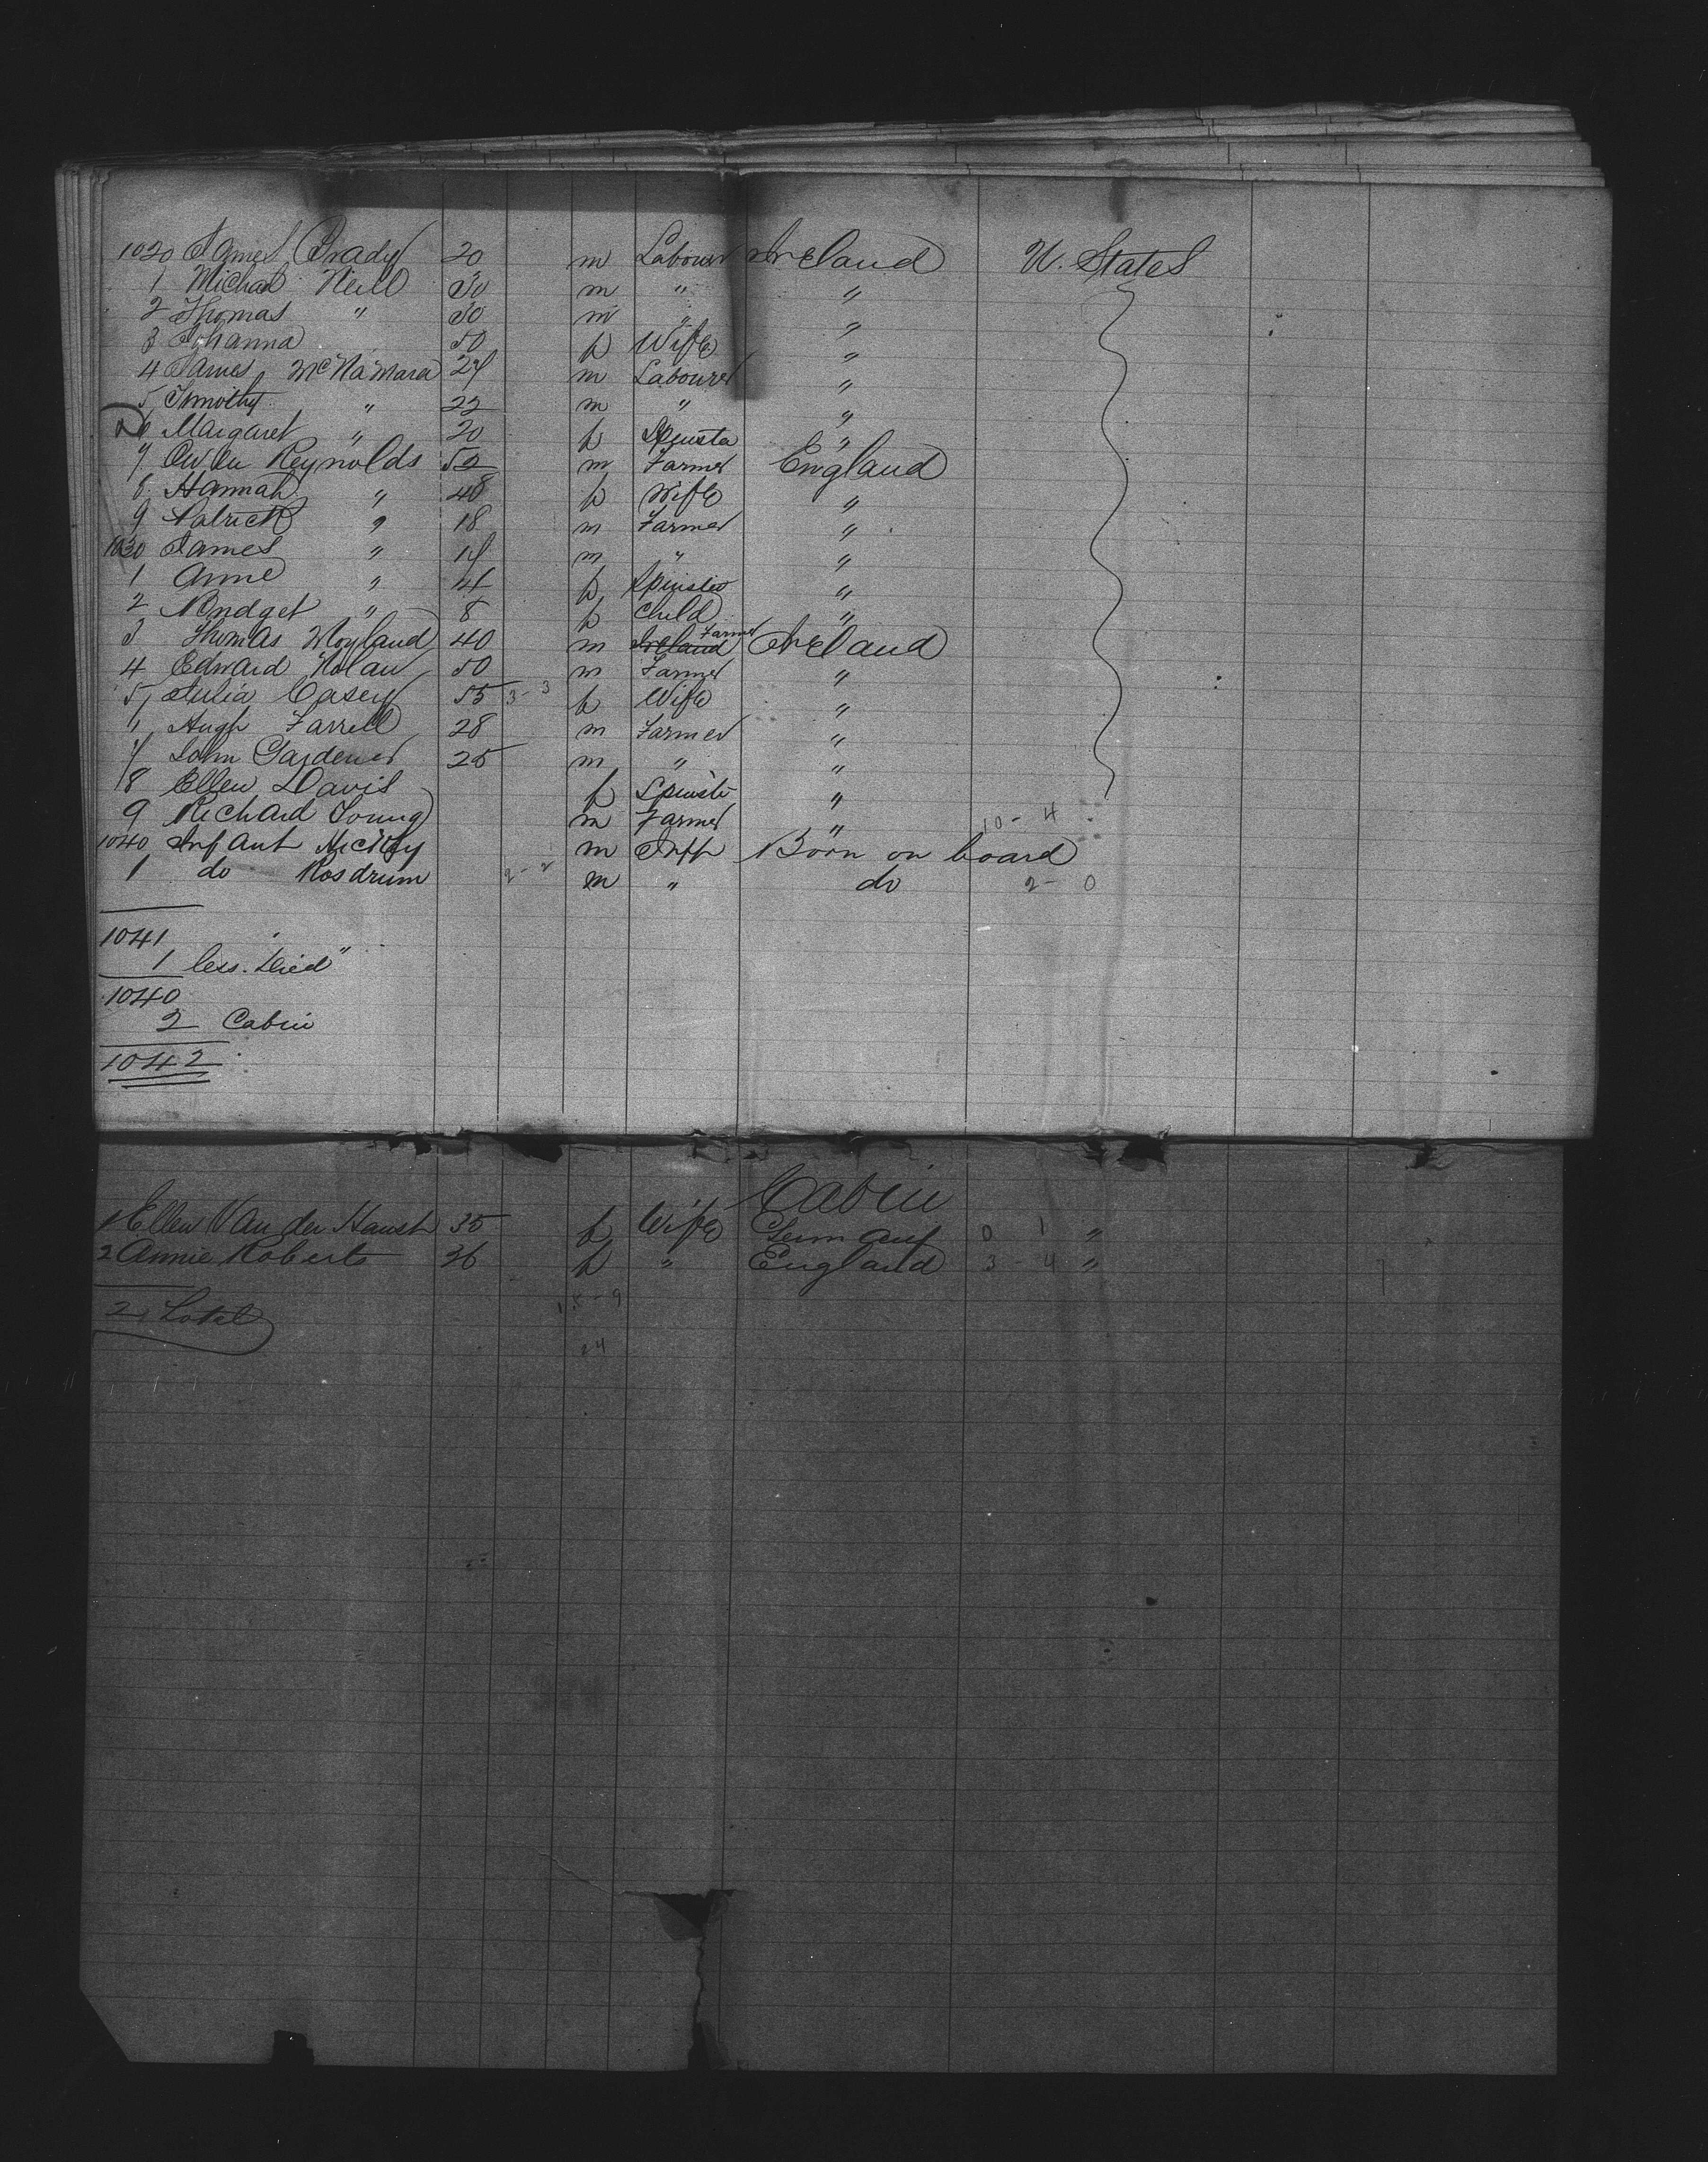 1020 James Brady 20 m Labourer Ireland U. States
1 Michael Neill 30 m " "
2 Thomas " 30 m " "
3 Johanna 50 f Wife "
4 James McNamara 24 m Labourer "
5 Timothy " 22 m " "
6 Margaret " 20 f Spinster "
7 Owen Reynolds 52 m Farmer England
8 Hannah " 48 f Wife "
9 Patrick " 18 m Farmer "
1030 James " 14 m " "
1 Anne " f Spinster "
2 Bridget " 8 f Child "
3 Thomas Moyland 40 m Ireland Farmer Ireland
4 Edward Nolan 50 m Farmer "
5 Julia Casey 55 3-3 f Wife "
Hugh Farrell 28 m Farmer "
7 John Gardener 25 m " "
8 Ellen Davis f Spinstr "
9 Richard Young m Farmer " 10-4
1040 Infant m Inft Born on board
1 do Rosdrum 2-2 m " do 2-0
1041
1 less "Died"
1040
2 Cabin
1042
Cabin
1 Ellen Van der 35 f Wife Germany 0 1 "
2 Annie Roberts 36 f " England 3-4 "
2 Total
15-9
24